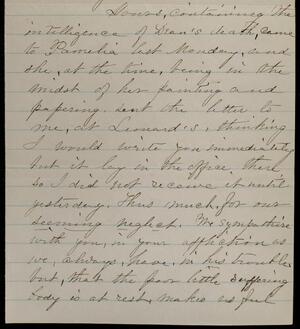 Yours, containing the
intelligence of Dean's death, came
to Pamelia last Monday, and
she, at the time, being in the
midst of her painting and
papering sent the letter to
me, at Leonard's, thinking
I would write you immediately
but it lay in the office there
so I did not receive it until
yesterday. Thus much, for our
seeming neglect. We sympathise
with you, in your affliction as
we, always, have, in his trouble
but, that the poor little suffering
body is at rest, makes us feel